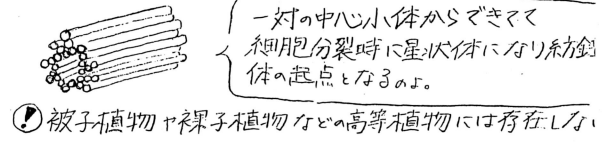 一対の中心小体からできてて
細胞分裂時に星状体になり紡錘
体の起点となるのよ。
! 被子植物や裸子植物などの高等植物には存在しない